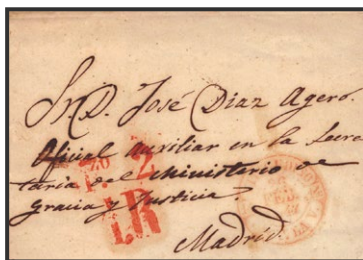 Sr. D. José Diaz Agero.
Oficial Auxiliar en la Secre
taría del Ministerio de
Gracia y Justicia
Madrid.
2
1R